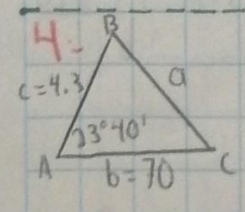 4.-
B
c=4.3
a
23°40'
A
b=70
C